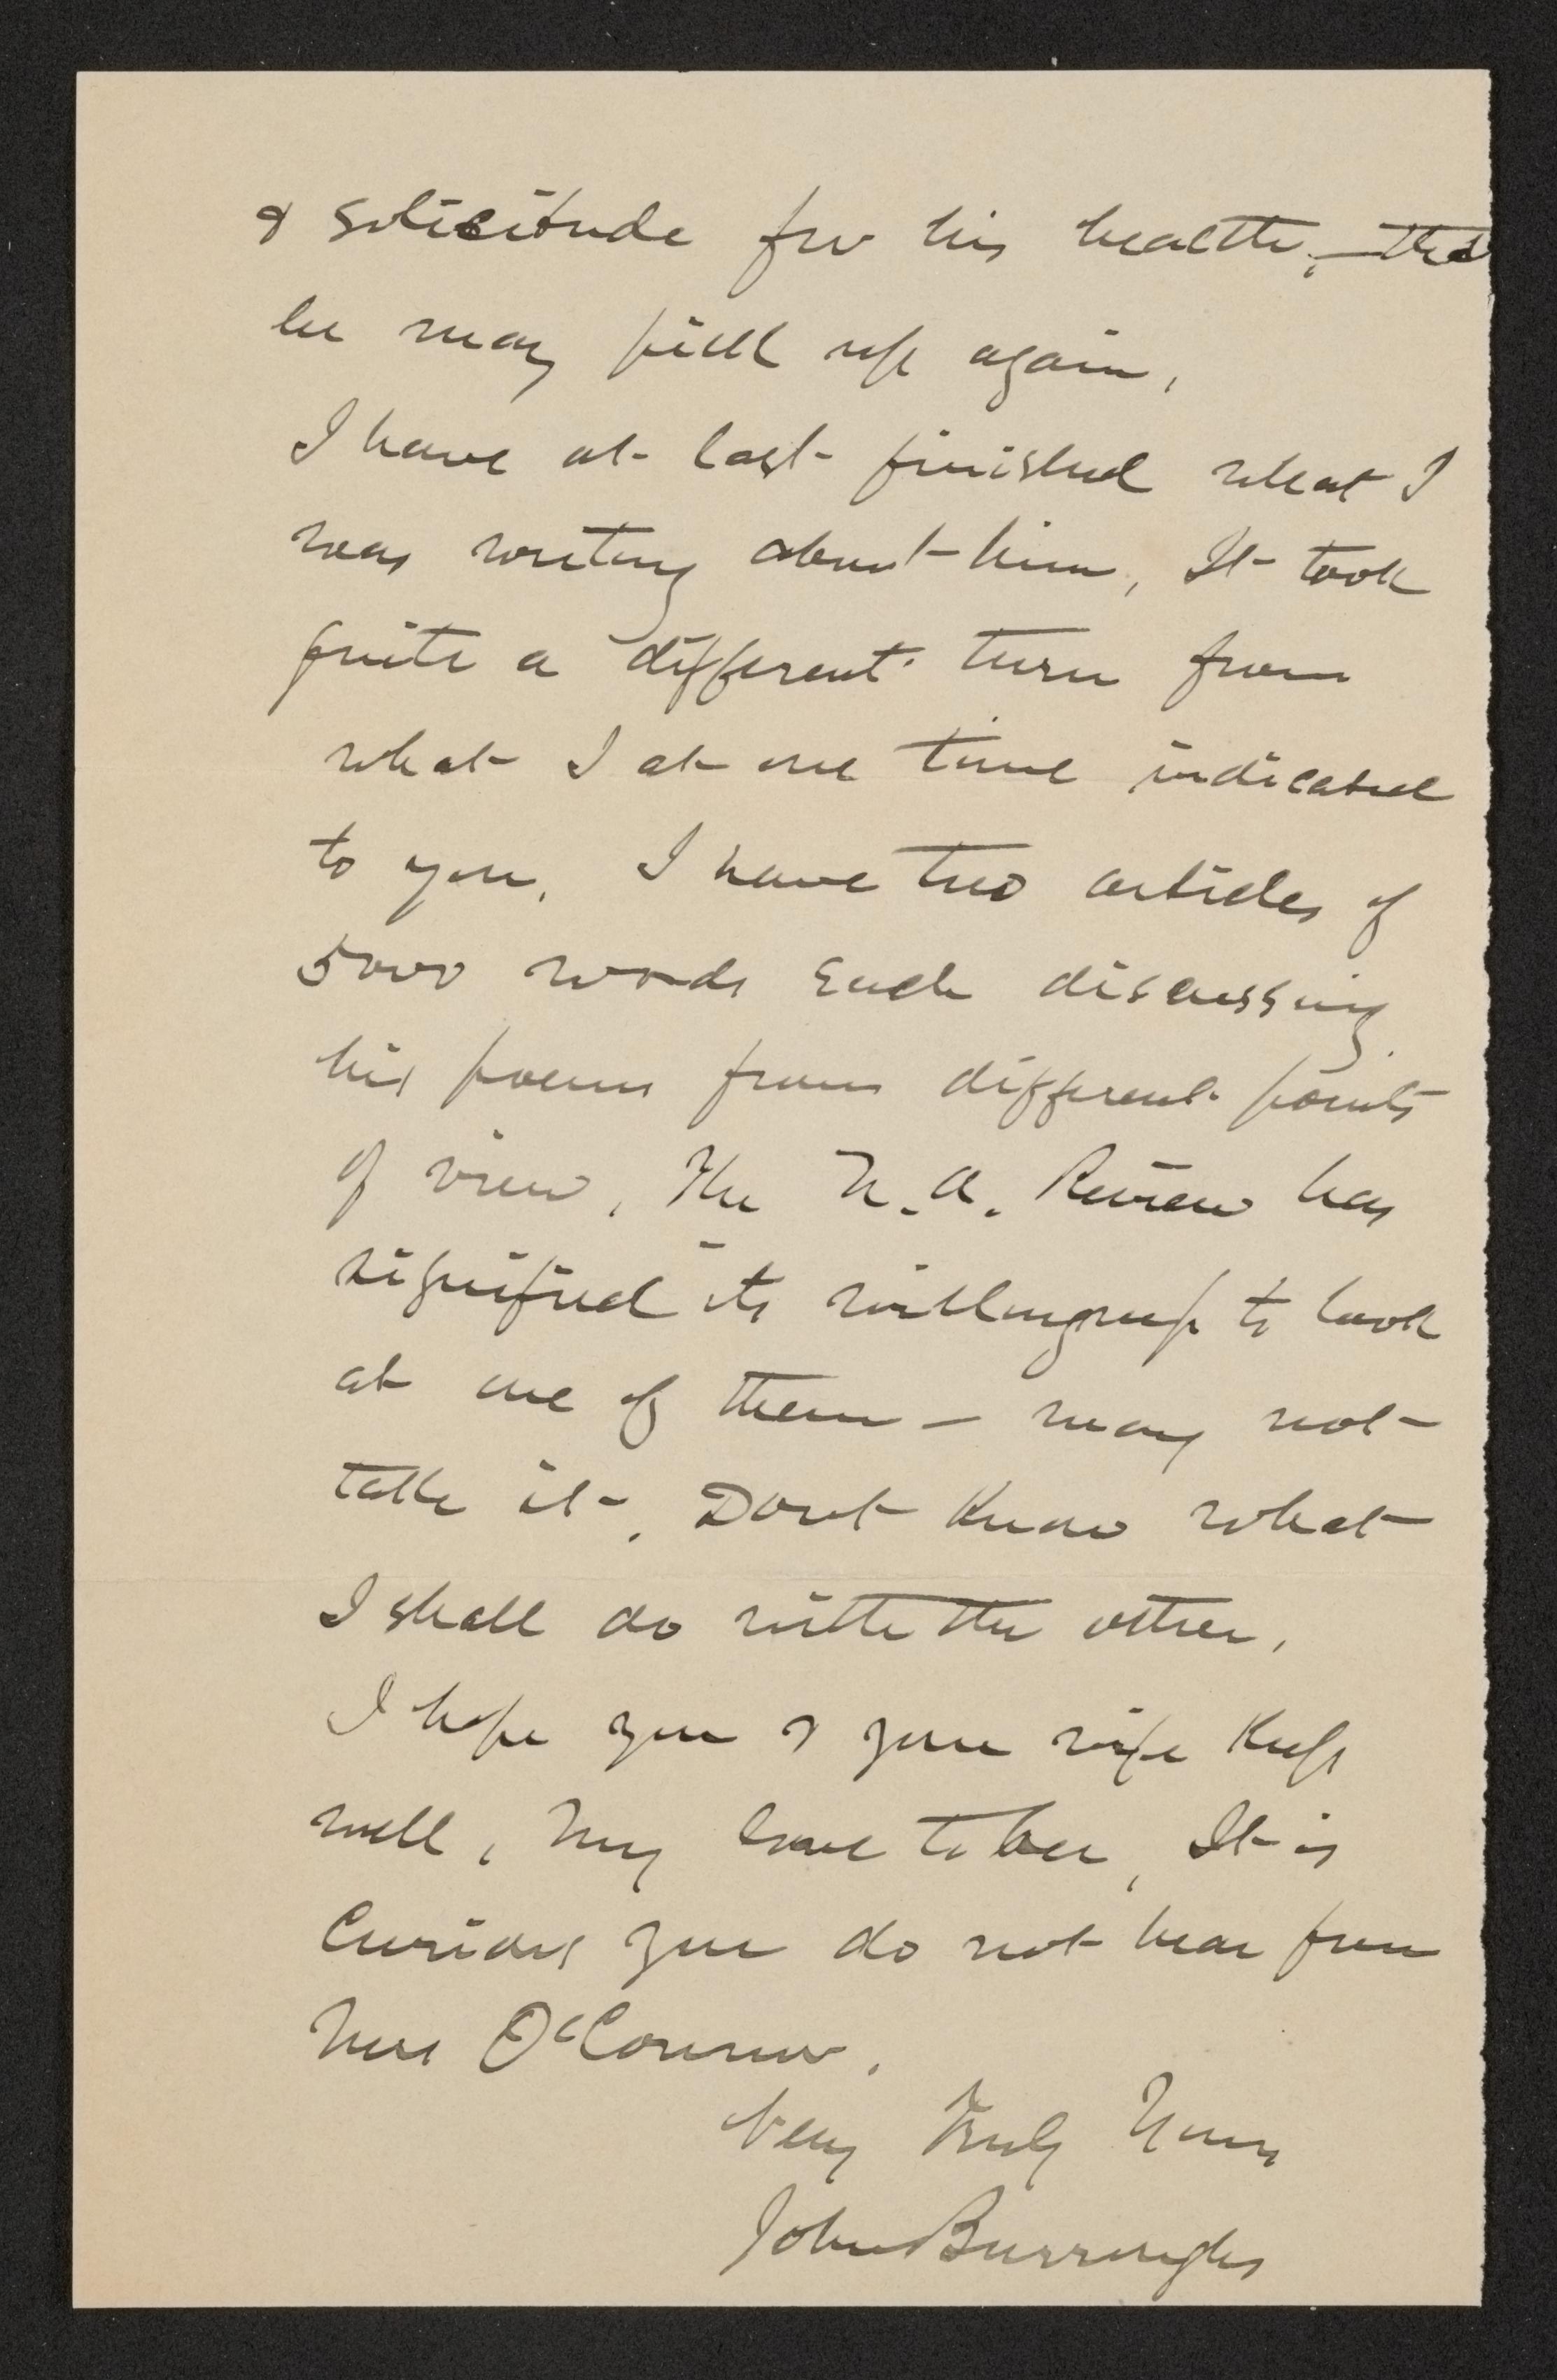 & solicitude for his health, — that
he may pick up again.
I have at last finished what I
was writing about him, It took
quite a different turn from
what I at one time indicated
to you. I have two articles of
5000 words each discussing
his poems from different points
of view. The N. A. Review has
signified its willingness to look
at one of them — may not
take it. Dont know what
I shall do with the other.
I hope you & your wife keep
well, My love to her, It is
Curious you do not hear from
Mrs O'Connor.
Very Truly Yours
John Burroughs